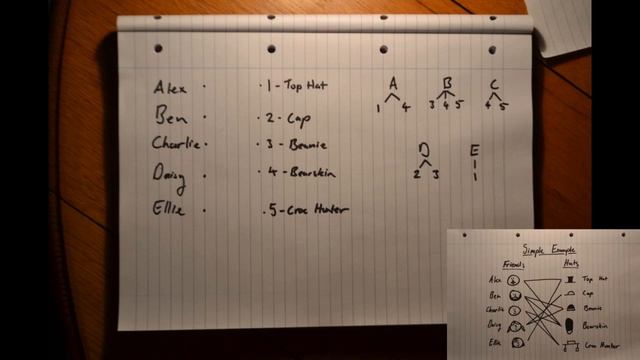 Alex . . 1 - Top Hat
Ben . . 2 - Cap
Charlie . . 3 - Beanie
Daisy . . 4 - Bearskin
Ellie . . 5 - Croc Hunter
A B C
1 4 3 4 5 4 5
D E
2 3 1
Simple Example
Friends Hats
Alex Top Hat
Ben Cap
Charlie Beanie
Daisy Bearskin
Ellie Croc Hunter